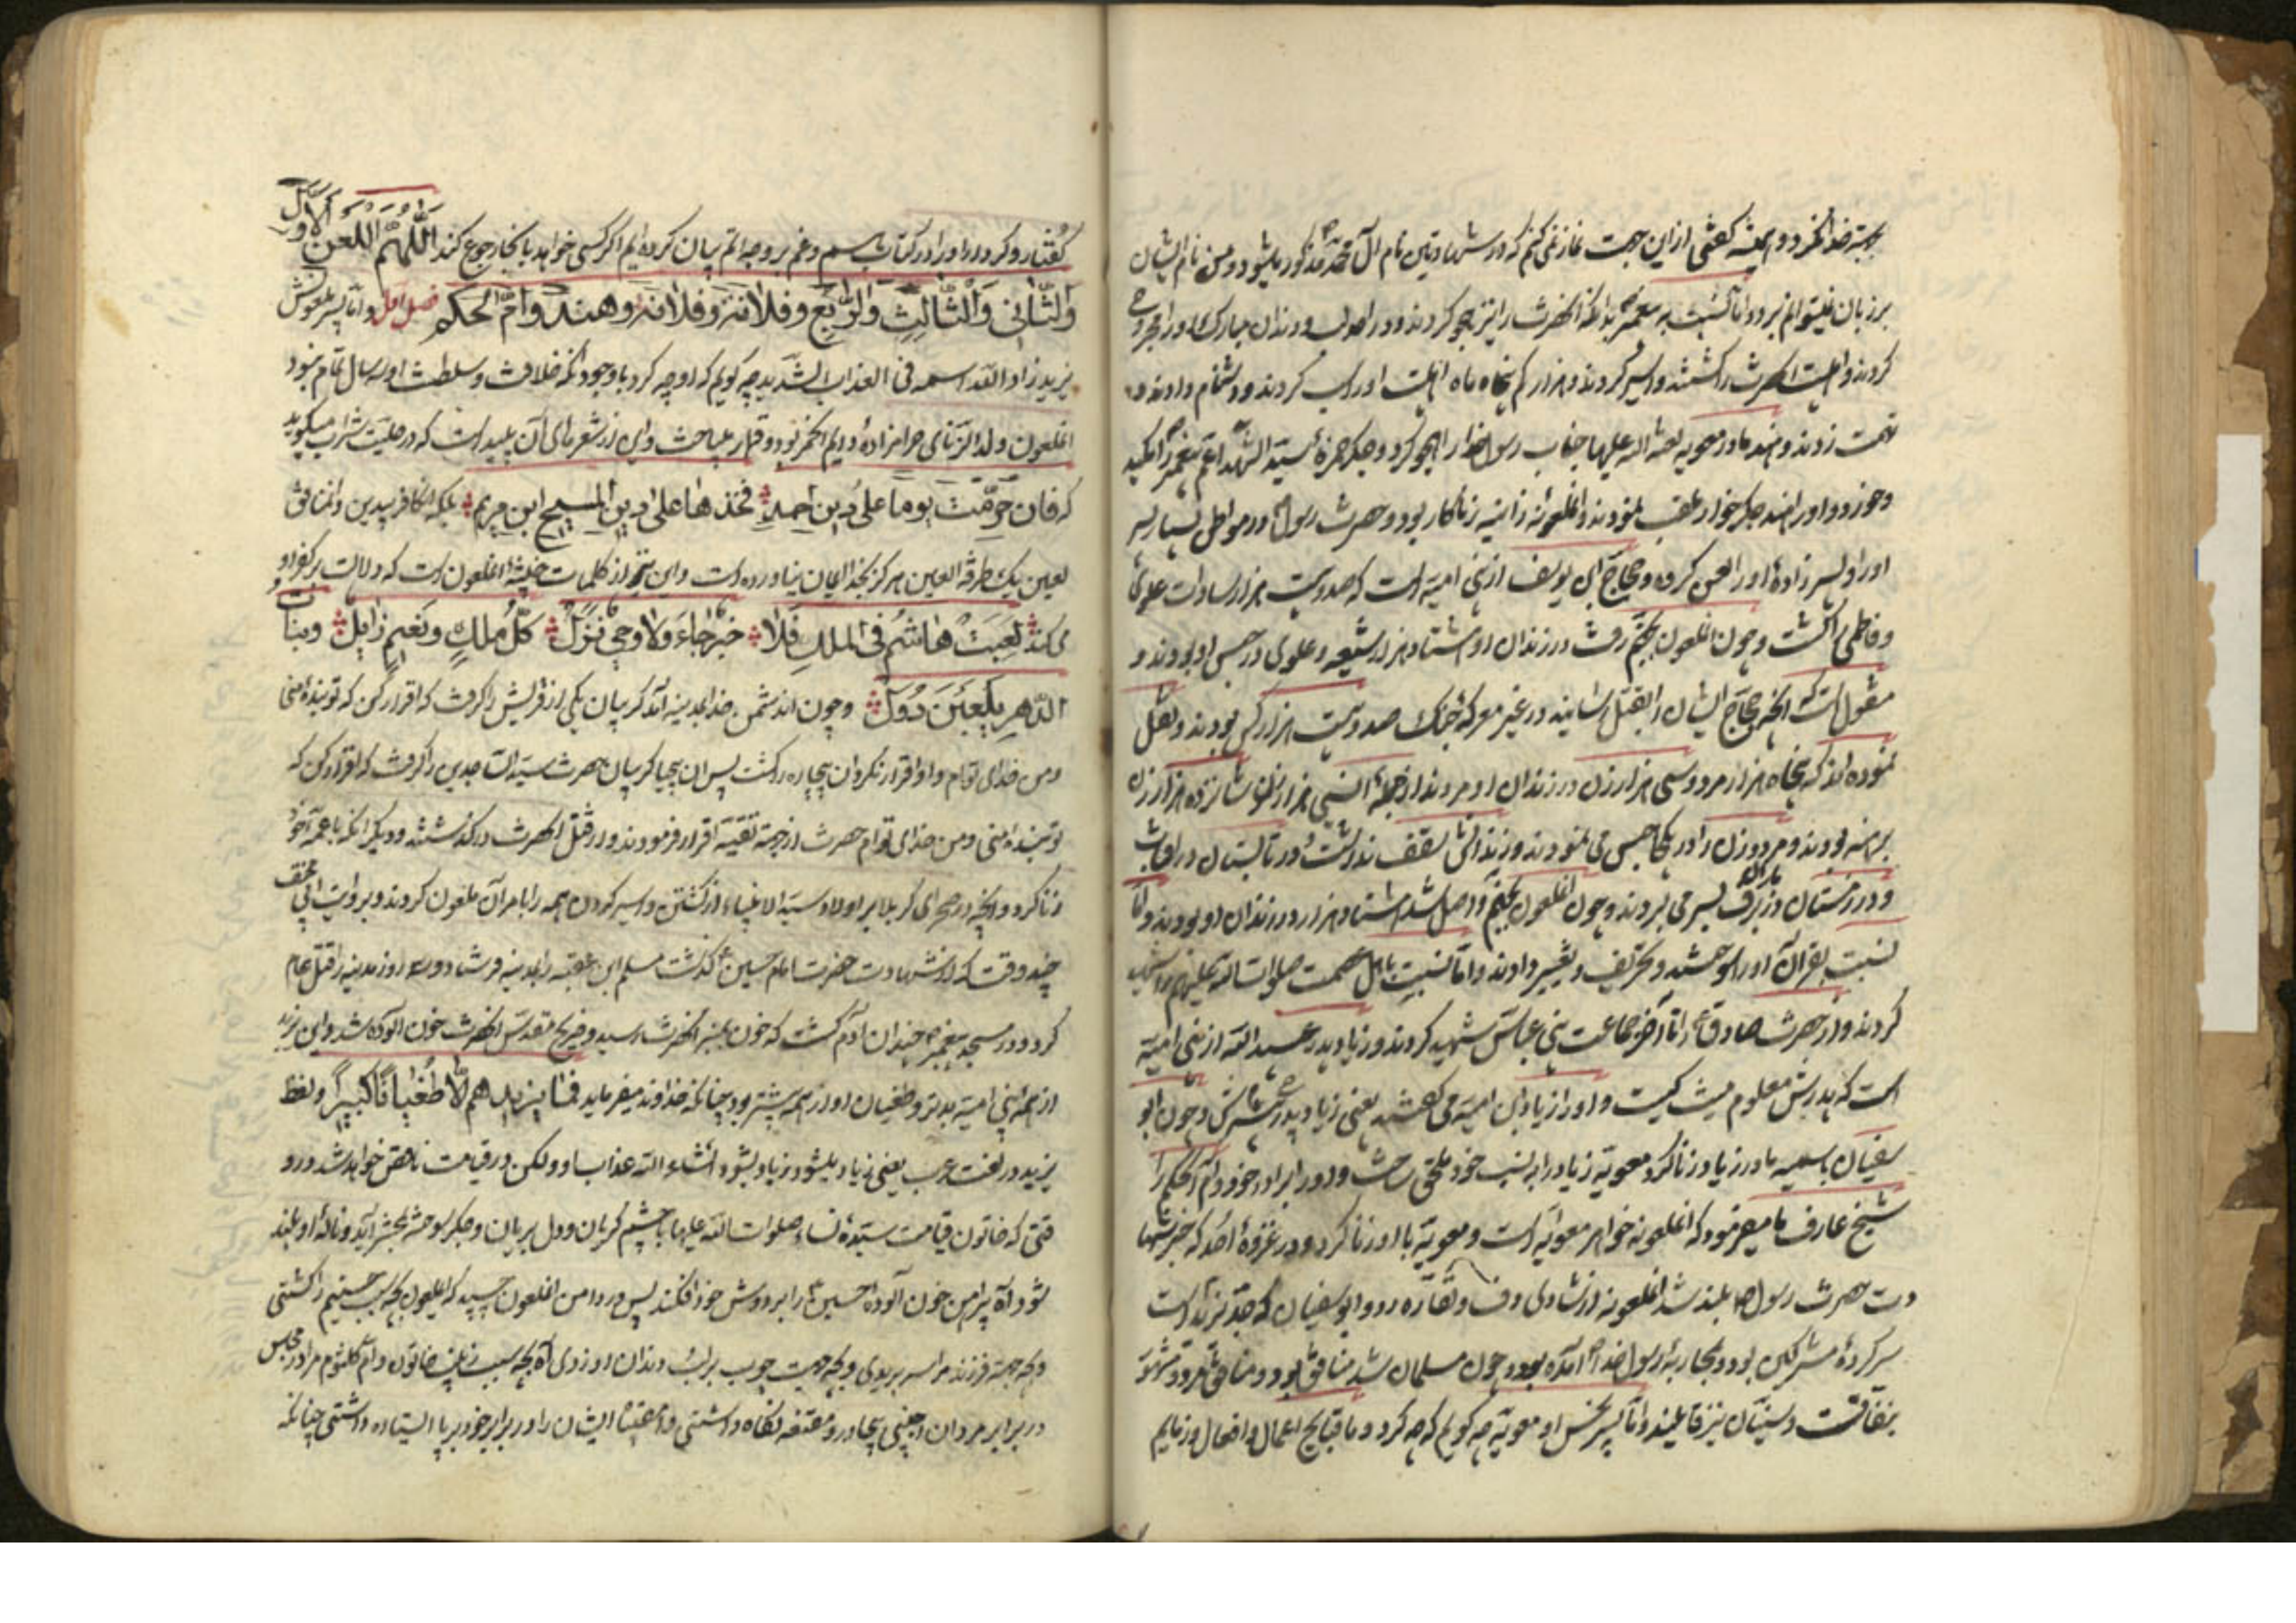 بجهة خدا نخرد و همیشه گفتی از این جهت نماز نمی کنم که در شهادتین نام آل محمد مذکور میشود و من نام ایشان
بر زبان نمیتوانم برد و اما نسبت به پیغمبر بدانکه آنحضرت را نیز هجو کردند و در احد لب و دندان مبارک او را مجروح
کردند و اهلبیت آنحضرت را کشتند و اسیر کردند و هزار کم پنجاه ماه اهلبیت او را سب کردند و دشنام دادند و
تهمت زدند و هند مادر معویه لعنة الله علیها جناب رسول خدا را هجو کرد و جگر حمزه سید الشهدا عم پیغمبر را مکید
و خورد و او را هند جگر خوار لقب نمودند و آنملعونه زانیه زناکار بود و حضرت رسول در مواطن بسیار
او را و پسر زاده او را لعن کرده و حجاج ابن یوسف از بنی امیه است که صد و بیست هزار سادات علوی
و فاطمی را کشت و چون آنملعون بجهنم رفت در زندان او هشتاد هزار شیعه و علوی در حبس او بودند و
منقول است که آنچه حجاج ایشان را بقتل رسانیده در غیر معرکه جنک صد و بیست هزار کس بودند و نقل
نموده اند که پنجاه هزار مرد و سی هزار زن در زندان او مردند از جمله آن سی هزار زن شانزده هزار زن
برهنه بودند و مرد و زن را در یکجا حبس می نمودند و زندانش سقف نداشت و در تابستان در آفتاب
و در زمستان در برف بسر می بردند و چون آنملعون بجهنم واصل شد هشتاد هزار در زندان او بودند و اما
نسبت بقرآن او را سوختند و تحریف و تغییر دادند و اما نسبت باهل عصمت صلوات الله علیهم
کردند و از حضرت صادق تا آخر جماعت بنی عباس شهید کردند و زیاد پدر عبید الله از بنی امیه
است که پدرش معلوم نیست کیست و او را زیاد ابن امیه می گفتند یعنی زیاد پدرش و چون ابو
سفیان با سمیه مادر زیاد زنا کرد معویه زیاد را به نسب خود ملحق ساخت و او را برادر خود و ام الحکم را
شیخ عارف ما میفرمود که آنملعونه خواهر معویه است و معویه با او زنا کرد و در غزوه احد که خبر شهادت
حضرت رسول بلند شد آنملعونه از شادی دف و نقاره زد و ابو سفیان که جد یزید است
سر کرده مشرکین بود و بمحاربه رسول خدا آمده بود و چون مسلمان شد منافق بود و منافق مرد
بنفاقت و سنیان نیز قایلند و اما پسر نحس او معویه چه گویم که چه کرد و ما قبایح اعمال و افعال وزمایم
گفتار و کردار او را در کتاب هم و غم بر وجه اتم بیان کرده ایم اگر کسی خواهد بآنجا رجوع کند اللّهمّ اللعن الاوّل
والثّانی والثّالث والرّابع وفلانة وفلانة وهند وامّ الحکم فصل اول و اما پسر ملعونش
یزید زاد الله اسمه فی العذاب الشدید چه گویم که او چه کرد با وجود آنکه خلافت و سلطنت او سه سال تمام نبود
آنملعون ولد الزنای حرامزاده و دایم الخمر بود و قمار میباخت و این از شعرهای آن پلید است که در حلیت شراب میگوید
که فان حرّمت یوما علی دین احمد فخذها علی دین المسیح ابن مریم بلکه آنکافر بیدین و المنافق
لعین یک طرفة العین هرگز بخدا ایمان نیاورده است و این نیز از کلمات خبیثه آنملعون است که دلالت بر کفر او
میکند لعبت هاشم فی الملک فلا خبر جاء ولا وحی نزل کلّ ملک ونعیم زایل وبنات
الدّهر یلعبن دول و چون آندشمن خدا بمدینه آمد گریبان یکی از قریش را گرفت که اقرار کن که تو بنده منی
و من خدای توام و او اقرار نکرد آن بیچاره را کشت پس آن بیحیا گریبان حضرت سید الساجدین را گرفت که اقرار کن که
تو بنده منی و من خدای توام حضرت از جهة تقیه اقرار فرمودند و از قتل آنحضرت در گذشتند و دیگر آنکه با عمه خود
زنا کرد و آنچه در صحرای کربلا بر اولاد سید الانبیاء از کشتن و اسیر کردن همه را بامر آن ملعون کردند و بروایت ابی مخنف
چند وقت که از شهادت حضرت امام حسین گذشت مسلم ابن عقبه را بمدینه فرستاد و سه روز مدینه را قتل عام
کرد و در مسجد پیغمبر چندان آدم کشت که خون بمنبر آنحضرت رسید و ضریح مقدس آنحضرت خون آلوده شد و این یزید
از همه بنی امیه بدتر و طغیان او از همه بیشتر بود چنانکه خداوند میفرماید فما یزیدهم الّا طغیاناً کبیراً و لفظ
یزید در لغت عرب یعنی زیاد میشود و زیاد بشود انشاء الله عذاب او ولکن در قیامت ناقص خواهد شد و در
وقتی که خاتون قیامت سیده نساء صلوات الله علیها با چشم گریان و دل بریان و جگر سوخته بمحشر آید و ناله او بلند
شود و پیراهن خون آلوده حسین را بر دوش خود افکند پس در دامن آنملعون چسبد که ایملعون بچه سبب حسینم را کشتی
و بچه جهة فرزند مرا سر بریدی و بچه جهت چوب بر لب و دندان او زدی و بچه سبب زینب خاتون و ام کلثوم مرا در مجلس
در برابر مردان اجنبی بیچادر و مقنعه نگاه داشتی و ایشان را در برابر خود بر پا ایستاده داشتی چنانکه